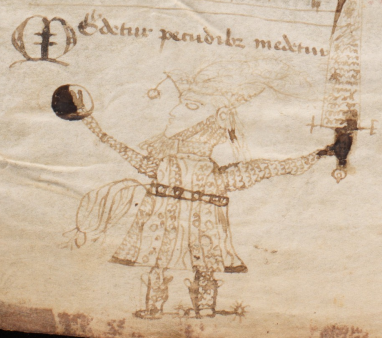 MEdetur pecudibz medetur